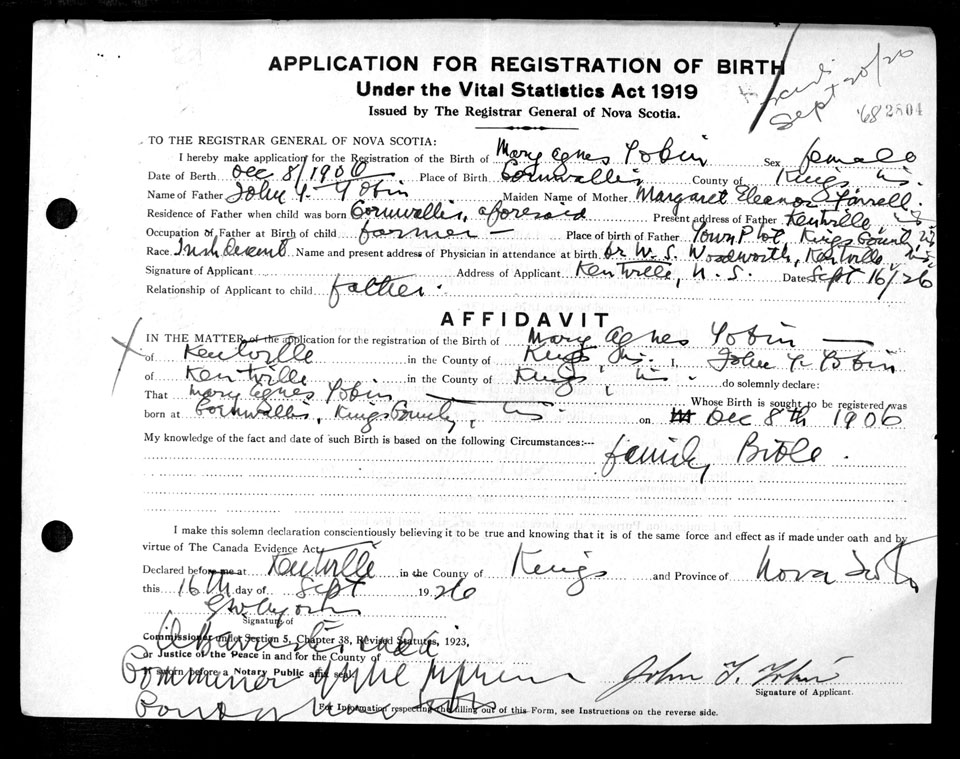 APPLICATION FOR REGISTRATION OF BIRTH
Under the Vital Statistics Act 1919
Sept 20/26
Issued by The Registrar General of Nova Scotia.
682804
TO THE REGISTRAR GENERAL OF NOVA SCOTIA:
I hereby make application for the Registration of the Birth of Mary Agnes Tobin Sex female
Date of Birth Dec 8/1906 Place of Birth Cornwallis County of Kings N.S.
Name of Father John T. Tobin Maiden Name of Mother Margaret Eleanor Farrell
Residence of Father when child was born Cornwallis, aforesaid Present address of Father Kentville, N.S.
Occupation of Father at Birth of child farmer Place of birth of Father Town Plot, Kings County N.S.
Race Irish Descent Name and present address of Physician in attendance at birth Dr W. S. Woodworth, Kentville, N.S.
Signature of Applicant Address of Applicant Kentville, N.S. Date Sept 16/26
Relationship of Applicant to child father.
AFFIDAVIT
IN THE MATTER of the application for the registration of the Birth of Mary Agnes Tobin
of Kentville in the County of Kings N.S. I, John T. Tobin
of Kentville in the County of Kings, N.S. do solemnly declare:
That Mary Agnes Tobin Whose Birth is sought to be registered was
born at Cornwallis, Kings County, N.S. on Dec 8th 1906
My knowledge of the fact and date of such Birth is based on the following Circumstances:---
family Bible.
I make this solemn declaration conscientiously believing it to be true and knowing that it is of the same force and effect as if made under oath and by
virtue of The Canada Evidence Act.
Declared before me at Kentville in the County of Kings and Province of Nova Scotia
this 16th day of Sept 1926
Signature of
Commissioner under Section 5, Chapter 38, Revised Statutes, 1923,
A Barrister and a
or Justice of the Peace in and for the County of
or sworn before a Notary Public and seal.
Commissioner of the Supreme
John T. Tobin
Signature of Applicant.
Court of Nova Scotia
For Information respecting the filling out of this Form, see Instructions on the reverse side.